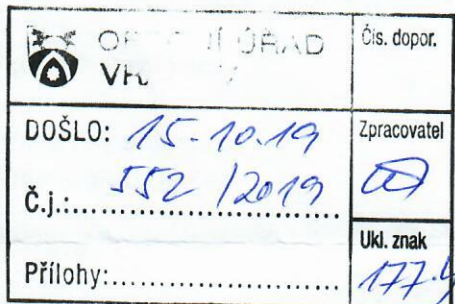 Čís. dopor.
DOŠLO: 15.10.19
Zpracovatel
Č.j.: 552/2019
Ukl. znak
Přílohy: